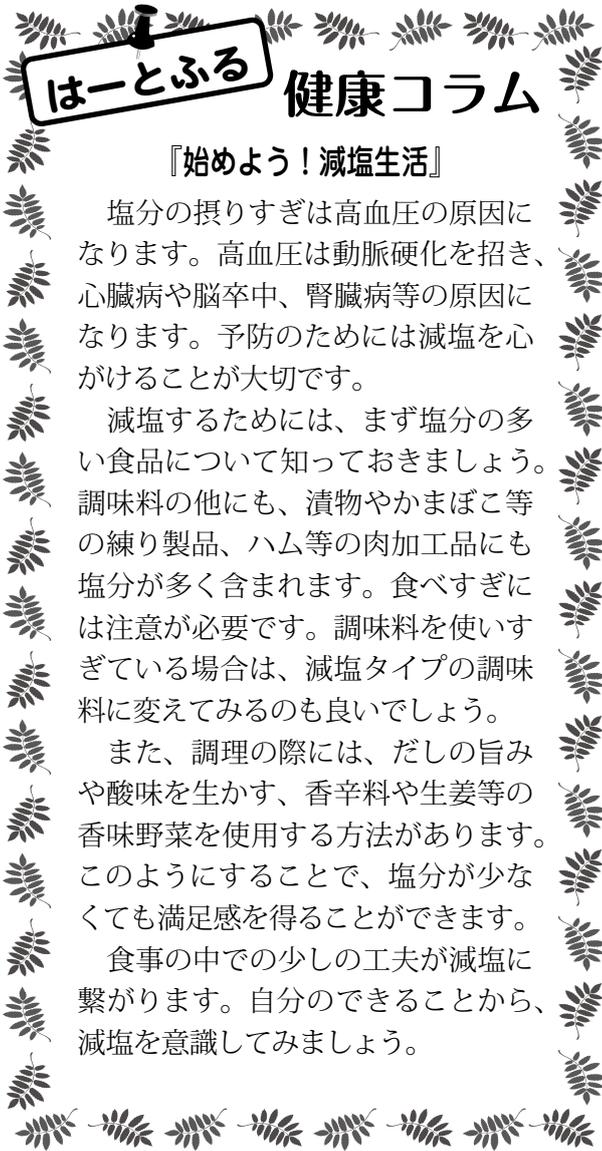 はーとふる
健康コラム
『始めよう！減塩生活』
　塩分の摂りすぎは高血圧の原因に
なります。高血圧は動脈硬化を招き、
心臓病や脳卒中、腎臓病等の原因に
なります。予防のためには減塩を心
がけることが大切です。
　減塩するためには、まず塩分の多
い食品について知っておきましょう。
調味料の他にも、漬物やかまぼこ等
の練り製品、ハム等の肉加工品にも
塩分が多く含まれます。食べすぎに
は注意が必要です。調味料を使いす
ぎている場合は、減塩タイプの調味
料に変えてみるのも良いでしょう。
　また、調理の際には、だしの旨み
や酸味を生かす、香辛料や生姜等の
香味野菜を使用する方法があります。
このようにすることで、塩分が少な
くても満足感を得ることができます。
　食事の中での少しの工夫が減塩に
繋がります。自分のできることから、
減塩を意識してみましょう。